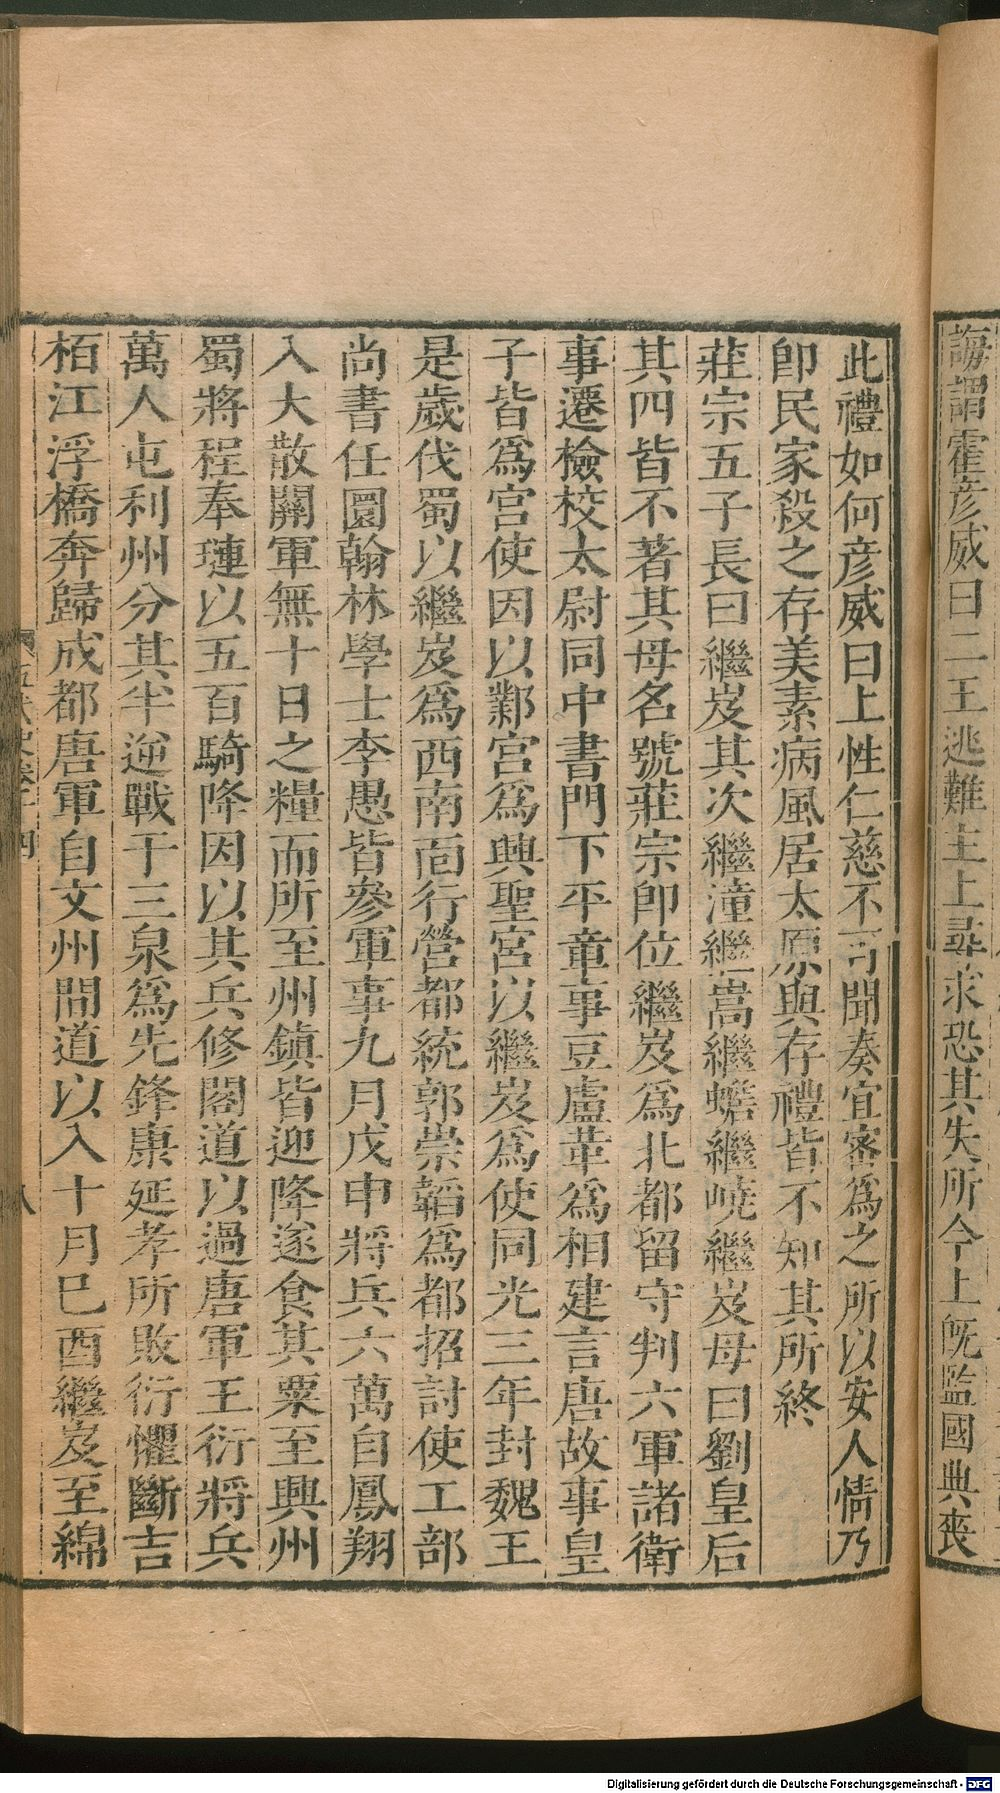 誨謂霍彥威曰二王逃難主上尋求恐其失所今上旣監國典喪
此禮如何彥威曰上性仁慈不可聞奏宜密爲之所以安人情乃
卽民家殺之存美素病風居太原與存禮皆不知其所終
莊宗五子長曰繼岌其次繼潼繼嵩繼蟾繼嶢繼岌母曰劉皇后
其四皆不著其母名號莊宗卽位繼岌爲北都留守判六軍諸衛
事遷檢校太尉同中書門下平章事豆盧革爲相建言唐故事皇
子皆爲宮使因以鄴宮爲興聖宮以繼岌爲使同光三年封魏王
是歲伐蜀以繼岌爲西南面行營都統郭崇韜爲都招討使工部
尚書任圜翰林學士李愚皆參軍事九月戊申將兵六萬自鳳翔
入大散關軍無十日之糧而所至州鎮皆迎降遂食其粟至興州
蜀將程奉璉以五百騎降因以其兵修閣道以過唐軍王衍將兵
萬人屯利州分其半逆戰于三泉爲先鋒康延孝所敗衍懼斷吉
栢江浮橋奔歸成都唐軍自文州間道以入十月巳酉繼岌至綿
八
Digitalisierung gefördert durch die Deutsche Forschungsgemeinschaft - DFG